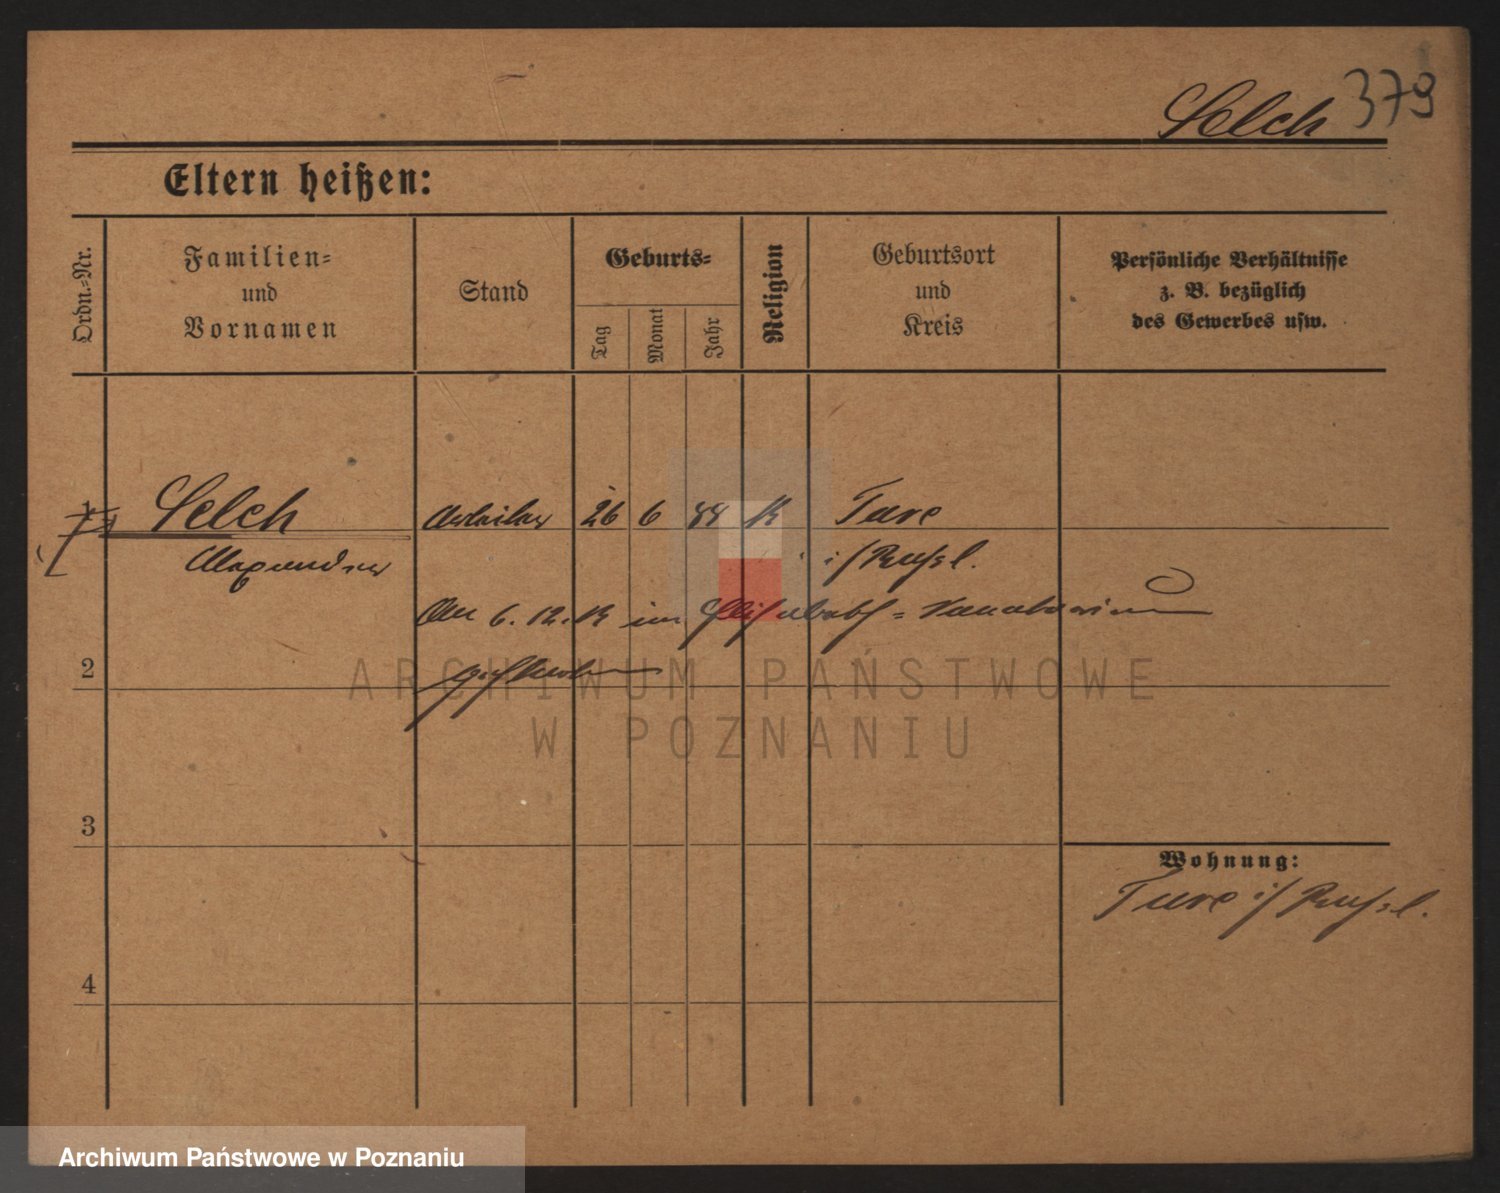 Selch 379
Eltern heißen:
Ordn.-Nr.
Familien-
und
Vornamen
Stand
Geburts-
Tag
Monat
Jahr
Religion
Geburtsort
und
Kreis
Persönliche Verhältnisse
z. B. bezüglich
des Gewerbes usw.
1
Selch Arbeiter 26 6 88 K Ture
Alexander i/Russl.
Am 6. 12. 13 im Elisabeth=Sanatorium
2
gestorben
ARCHIWUM PAŃSTWOWE
W POZNANIU
3
Wohnung:
Ture i/Russl.
4
Archiwum Państwowe w Poznaniu